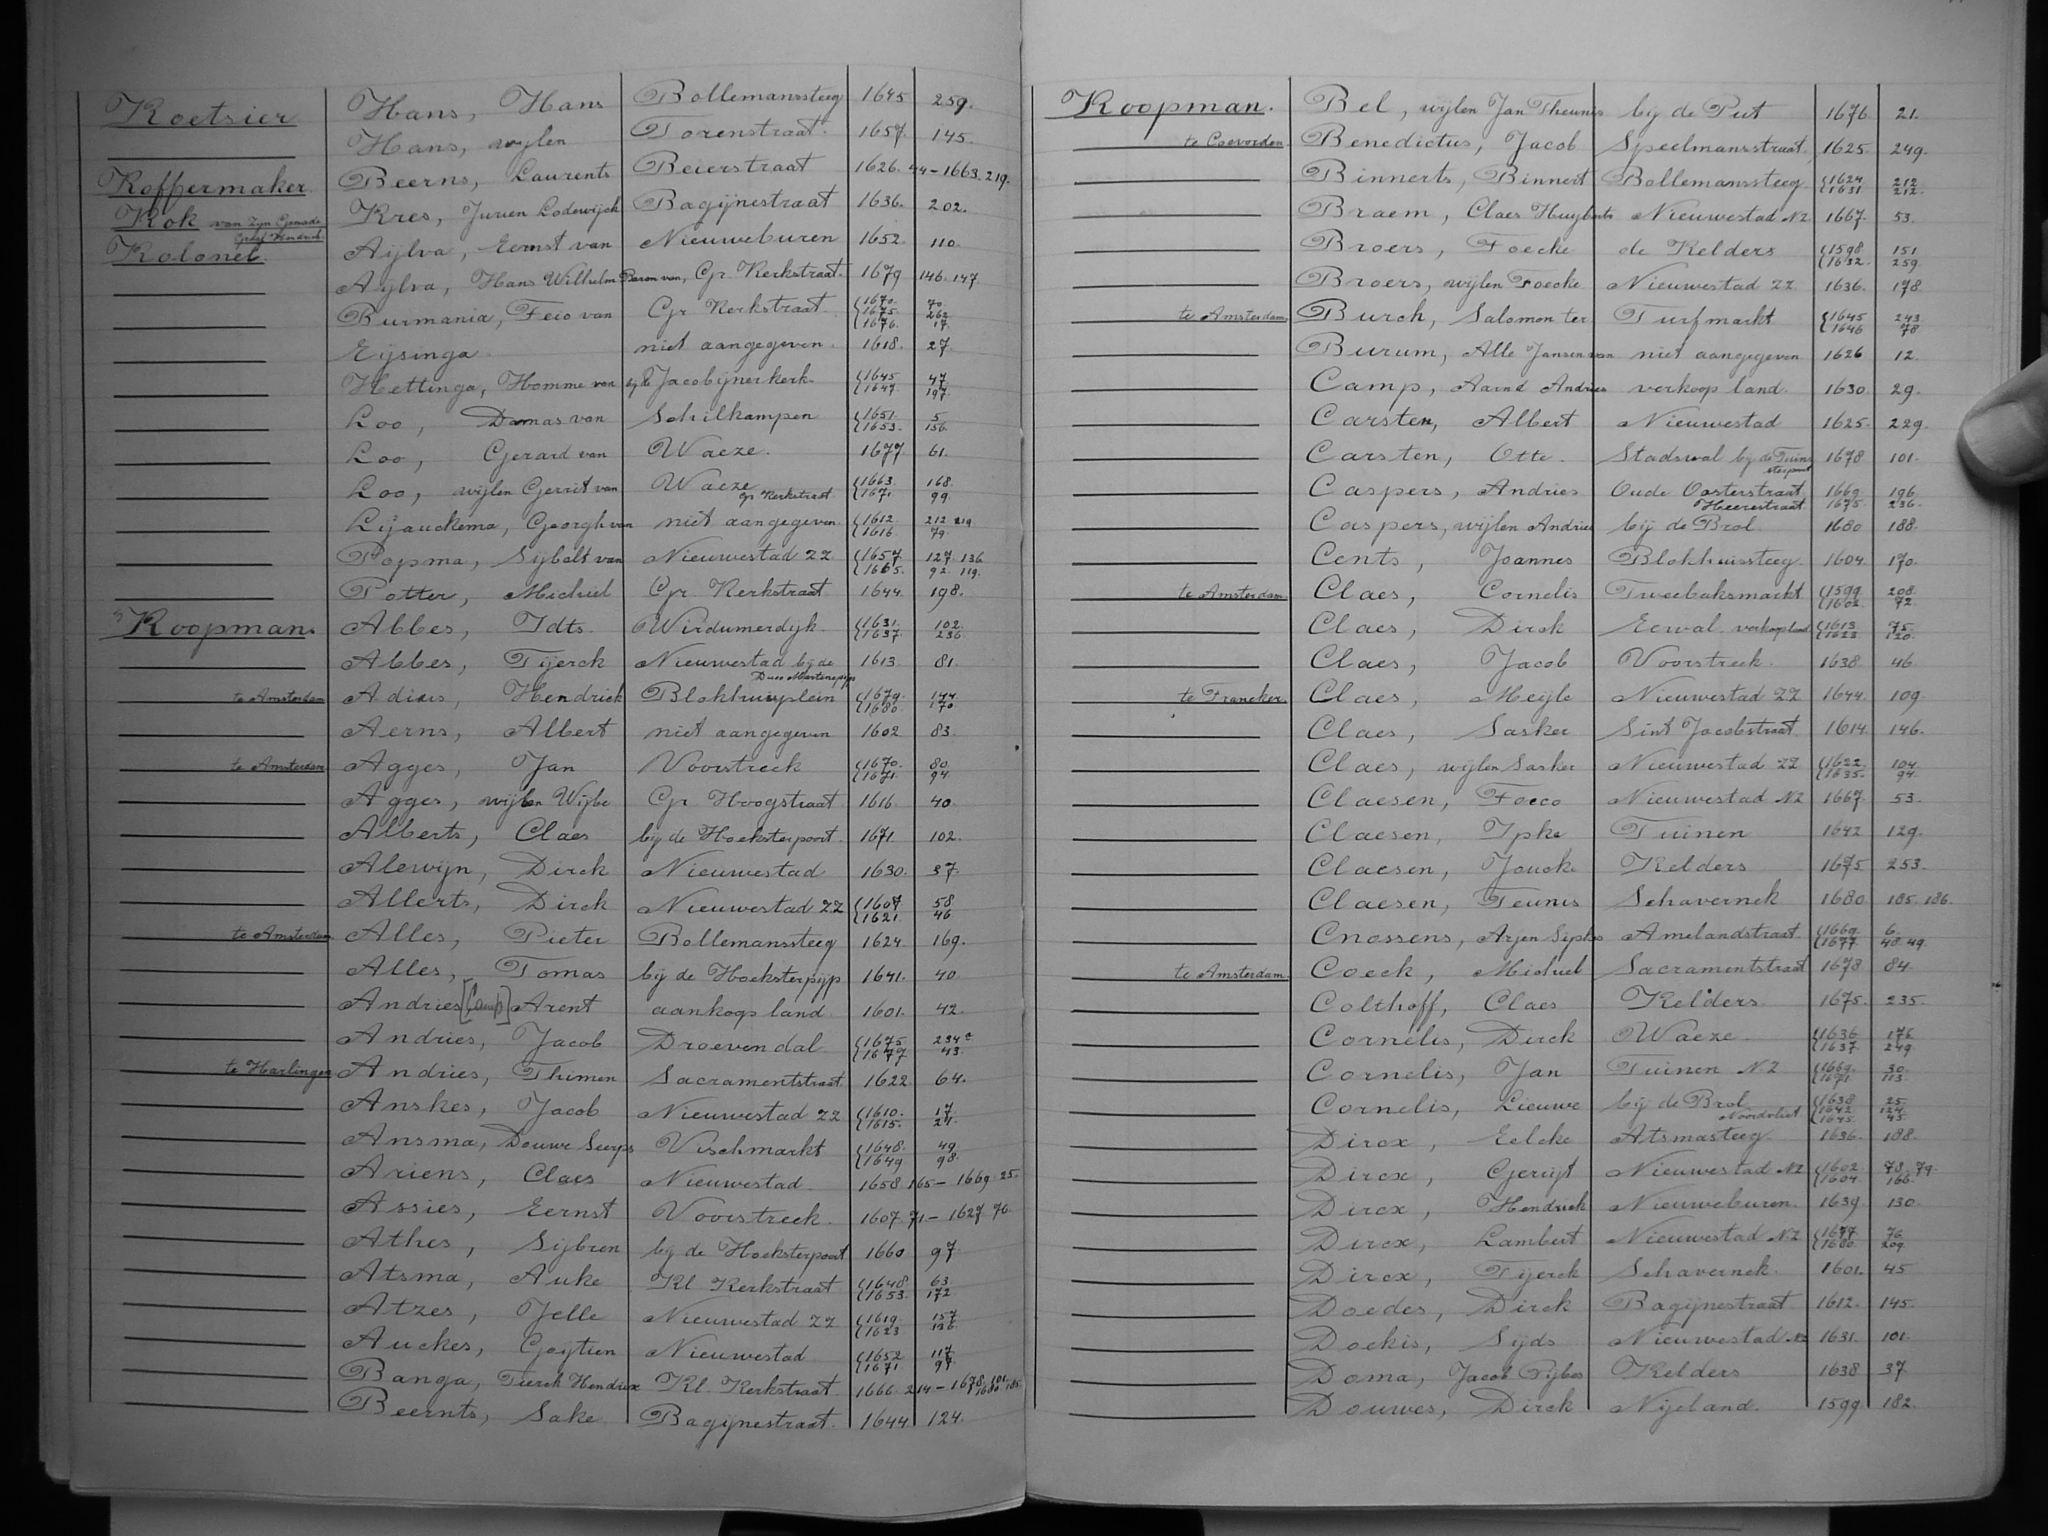 Koetsier Hans, Hans Bollemanssteeg 1645 259.
Hans, wijlen Torenstraat. 1657. 145.
Koffermaker. Beerns, Laurents Beierstraat 1626. 44 - 1663. 219.
Kok van Zijn Gernade Graaf Hendrick Kres, Jurien Lodewijck Bagijnestraat 1636. 202.
Kolonel. Aijlva, Ernst van Nieuweburen 1652. 110.
Aijlva, Hans Wilhelm Baron van, Gr. Kerkstraat. 1679 146. 147.
Burmania, Feio van Gr Kerkstraat {1670. 1675. 1676. 70. 262 17.
Eijsinga niet aangegeven. 1618. 27.
Hettinga, Homme van Jacobijnerkerk {1645. 1647. 47. 197.
Loo, Damas van Schilkampen {1651. 1653. 5. 136.
Loo, Gerard van Waeze. 1677 61.
Loo, wijlen Gerrit van Waeze Gr Kerkstraat {1663. 1671. 168. 99.
Lijauckema, Georgh van niet aangegeven. {1612 1616. 212 219 79.
Popma, Sijbolt van Nieuwestad ZZ {1657 1665. 127. 136 92. 119.
Potter, Michiel Gr Kerkstraat 1644. 198.
Koopman. Abbes, Idts Wirdumerdyk. {1631. 1637. 102. 236.
Abbes, Tijerck Nieuwestad bij de Duco Martenapijp 1613. 81.
te Amsterdam Adius, Hendrick Blokhuisplein {1679. 1680. 144 170
Aerns, Albert niet aangegeven 1602 83.
te Amsterdam Agges, Jan Voorstreek {1670. 1671. 80. 94.
Agges, wijlen Wijbe Gr Hoogstraat 1616. 40.
Alberts, Claes bij de Hoeksterpoort. 1671. 102.
Alewijn, Dirck Nieuwestad 1630. 37.
Allerts, Dirck Nieuwestad ZZ {1607 1621. 58 46
te Amsterdam Alles, Pieter Bollemanssteeg 1624 169.
Alles, Tomas bij de Hoeksterpijp 1641. 40
Andries [Camp] Arent aankoop land. 1601. 42.
Andries, Jacob Droevendal {1675 1677 234c 43.
te Harlingen Andries, Thimen Sacramentstraat 1622 64.
Anskes, Jacob Nieuwestad ZZ {1610. 1615. 17 24.
Ansma, Douwe Seerps Vischmarkt {1648. 1649 49. 98.
Ariens, Claes Nieuwestad. 1658. 165 - 1669. 25.
Assies, Eernst Voorstreek. 1607. 71 - 1627. 76.
Athes, Sijbren bij de Hoeksterpoort 1660 97.
Atsma, Auke Kl. Kerkstraat {1648 1653. 63. 172.
Atzes, Jelle Nieuwestad ZZ {1619. 1623 157 136
Auckes, Goijtien Nieuwestad {1652 1671 117. 97.
Banga, Tierck Hendrix Kl. Kerkstraat. 1666. 214 - 1678. 101. 1680. 185.
Beernts, Sake Bagijnestraat. 1644 124.
Koopman. Bel, wijlen Jan Theunis bij de Put 1676. 21.
te Coevorden Benedictus, Jacob Speelmansstraat 1625. 249.
Binnerts, Binnert Bollemanssteeg {1624. 1631. 212 212.
Braem, Claes Huyberts Nieuwestad NZ 1667. 53.
Broers, Foecke de Kelders {1598. 1632. 151 259
Broers, wijlen Foecke Nieuwestad ZZ. 1636. 178
te Amsterdam Burch, Salomon ter Turfmarkt {1645 1646 243 78
Burum, Alle Jansen van niet aangegeven 1626 12.
Camp, Aarnd Andries verkoop land. 1630. 29.
Carsten, Albert Nieuwestad 1625. 229.
Carsten, Otte. Stadswal bij de Tuinsterpoort 1678 101.
Caspers, Andries Oude Oosterstraat Heerestraat 1669. 1675. 196 236.
Caspers, wijlen Andries bij de Brol. 1680 188.
Cents, Joannes Blokhuissteeg. 1604. 170.
te Amsterdam Claes, Cornelis Tweebaksmarkt {1599 1602. 208. 72.
Claes, Dirck Eewal. verkoop land {1613. 1623 75. 120.
Claes, Jacob Voorstreek. 1638 46.
te Franeker. Claes, Meijle Nieuwestad ZZ 1644. 109.
Claes, Sasker Sint Jacobstraat. 1614. 146.
Claes, wijlen Sasker Nieuwestad ZZ {1622. 1635. 104. 94.
Claesen, Focco Nieuwestad NZ 1667. 53.
Claesen, Ipke Tuinen 1642 129.
Claesen, Joucke Kelders 1675. 253.
Claesen, Teunis Schavernek 1680 185. 186.
Cnossens, Arjen Sipkes Amelandstraat. {1669. 1677. 6. 48. 49.
te Amsterdam. Coeck, Michiel Sacramentstraat 1678 84.
Colthoff, Claes Kelders. 1675. 235.
Cornelis, Dirck Waeze. {1636 1637 176 249
Cornelis, Jan Tuinen NZ {1669. 1671. 30. 113.
Cornelis, Lieuwe bij de Brol. Noordvliet {1638 1642 1645. 25. 124. 45.
Dircx, Eelcke Atsmasteeg. 1636. 188.
Dircx, Gerrijt Nieuwestad NZ {1602. 1604. 78. 79. 166.
Dircx, Hendrick Nieuweburen. 1639. 130.
Dircx, Lambert Nieuwestad NZ {1677 1680. 76. 209.
Dircx, Tijerck Schavernek. 1601. 45
Doedes, Dirck Bagijnestraat. 1612. 145.
Doekis, Sijds Nieuwestad NZ 1631. 101.
Doma, Jacob Pijbes Kelders 1638 37.
Douwes, Dirck Nijeland. 1599 182.